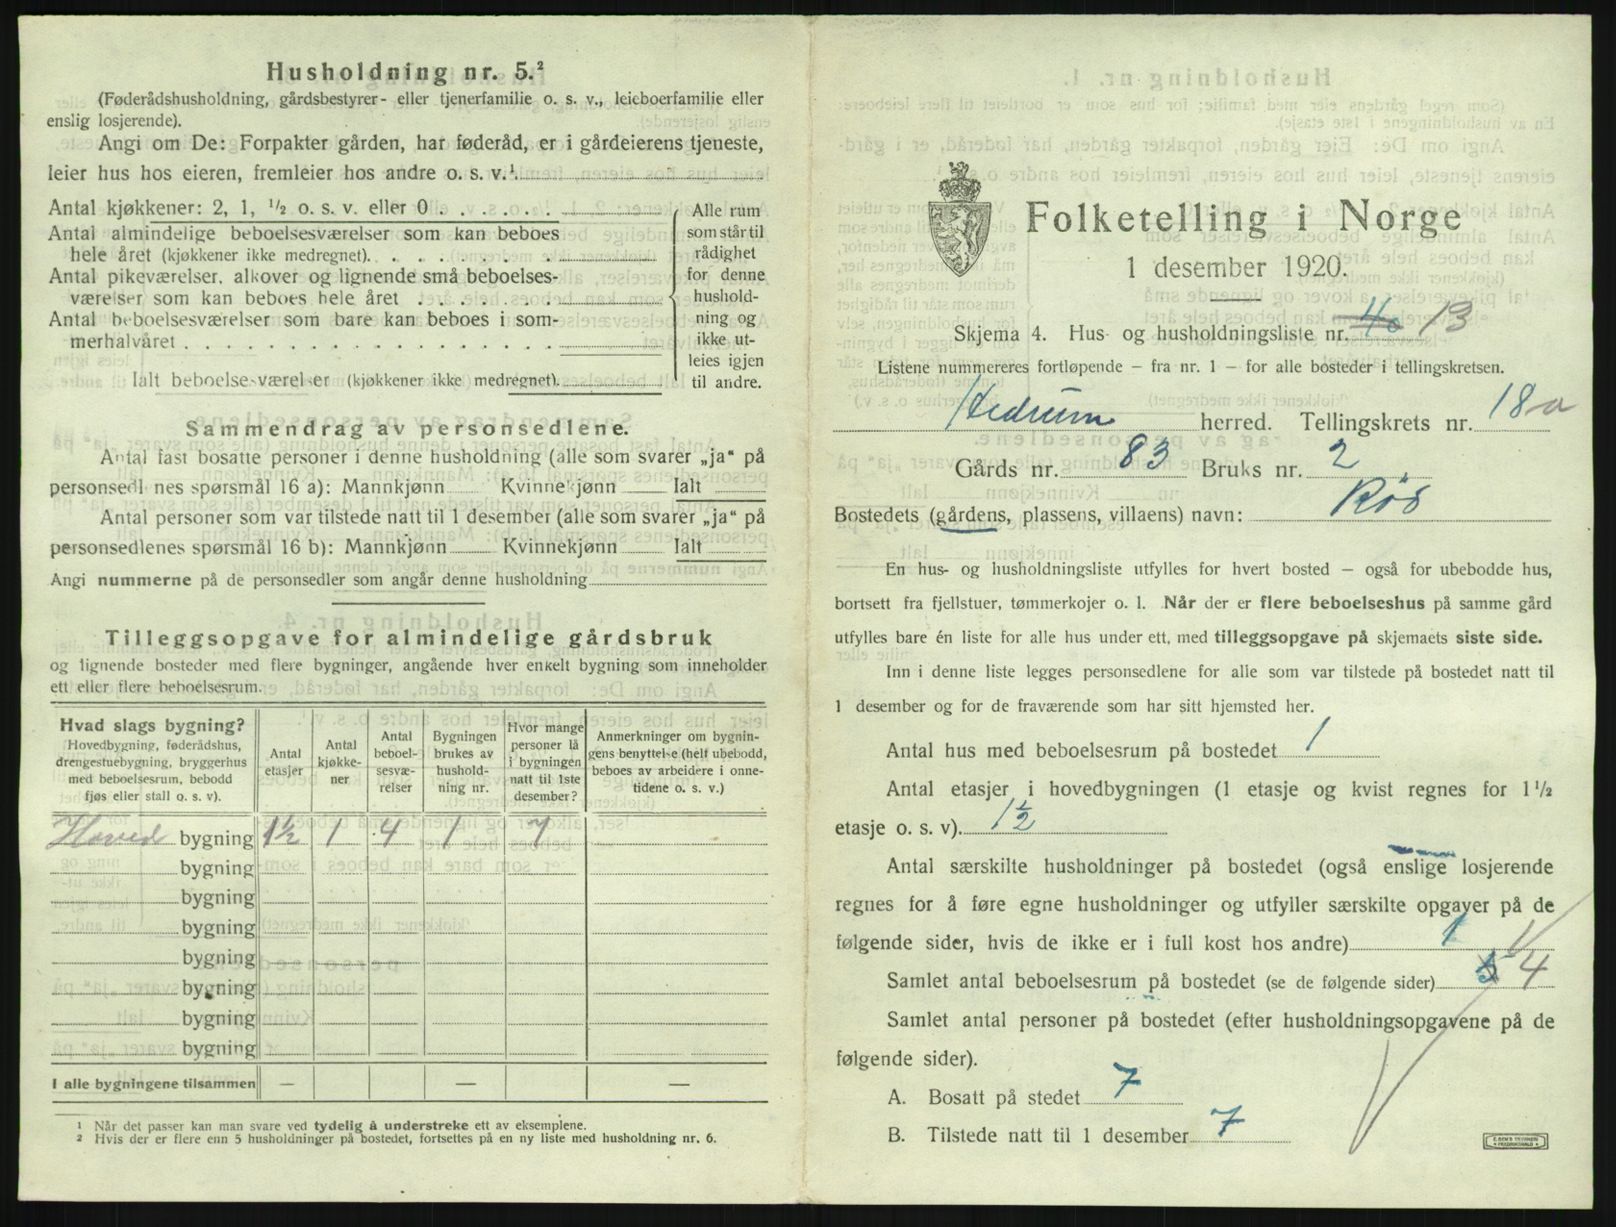 Husholdning nr. 5.²
(Føderådshusholdning, gårdsbestyrer- eller tjenerfamilie o. s. v., leieboerfamilie eller
enslig losjerende).
Angi om De: Forpakter gården, har føderåd, er i gårdeierens tjeneste,
leier hus hos eieren, fremleier hos andre o. s. v.¹
Antal kjøkkener: 2, 1, ¹/₂ o. s. v. eller 0
Antal almindelige beboelsesværelser som kan beboes
hele året (kjøkkener ikke medregnet).
Antal pikeværelser, alkover og lignende små beboelses-
værelser som kan beboes hele året
Antal beboelsesværelser som bare kan beboes i som-
merhalvåret
Ialt beboelsesværelser (kjøkkener ikke medregnet).
Alle rum
som står til
rådighet
for denne
hushold-
ning og
ikke ut-
leies igjen
til andre.
Sammendrag av personsedlene.
Antal fast bosatte personer i denne husholdning (alle som svarer „ja“ på
personsedlenes spørsmål 16 a): Mannkjønn Kvinnekjønn Ialt
Antal personer som var tilstede natt til 1 desember (alle som svarer „ja“ på
personsedlenes spørsmål 16 b): Mannkjønn Kvinnekjønn Ialt
Angi nummerne på de personsedler som angår denne husholdning
Tilleggsopgave for almindelige gårdsbruk
og lignende bosteder med flere bygninger, angående hver enkelt bygning som inneholder
ett eller flere beboelsesrum.
Hvad slags bygning?
Hovedbygning, føderådshus,
drengestuebygning, bryggerhus
med beboelsesrum, bebodd
fjøs eller stall o. s. v).
Antal
etasjer
Antal
kjøkke-
ner
Antal
beboel-
sesvæ-
relser
Bygningen
brukes av
hushold-
ning nr.
Hvor mange
personer lå
i bygningen
natt til 1ste
desember?
Anmerkninger om bygnin-
gens benyttelse (helt ubebodd,
beboes av arbeidere i onne-
tidene o. s. v.)
Hoved bygning 1½ 1 4 1 7
bygning
bygning
bygning
bygning
bygning
bygning
bygning
I alle bygningene tilsammen — — —
¹ Når det passer kan man svare ved tydelig å understreke ett av eksemplene.
² Hvis der er flere enn 5 husholdninger på bostedet, fortsettes på en ny liste med husholdning nr. 6.
Folketelling i Norge
1 desember 1920.
Skjema 4. Hus- og husholdningsliste nr. 40 13
Listene nummereres fortløpende – fra nr. 1 – for alle bosteder i tellingskretsen.
Hedrum herred. Tellingskrets nr. 18a
Gårds nr. 83 Bruks nr. 2
Bostedets (gårdens, plassens, villaens) navn: Røs
En hus- og husholdningsliste utfylles for hvert bosted – også for ubebodde hus,
bortsett fra fjellstuer, tømmerkojer o. l. Når der er flere beboelseshus på samme gård
utfylles bare én liste for alle hus under ett, med tilleggsopgave på skjemaets siste side.
Inn i denne liste legges personsedlene for alle som var tilstede på bostedet natt til
1 desember og for de fraværende som har sitt hjemsted her.
Antal hus med beboelsesrum på bostedet 1
Antal etasjer i hovedbygningen (1 etasje og kvist regnes for 1 ¹/₂
etasje o. s. v). 1½
Antal særskilte husholdninger på bostedet (også enslige losjerende
regnes for å føre egne husholdninger og utfyller særskilte opgaver på de
følgende sider, hvis de ikke er i full kost hos andre) 1
Samlet antal beboelsesrum på bostedet (se de følgende sider) 5 4
Samlet antal personer på bostedet (efter husholdningsopgavene på de
følgende sider).
A. Bosatt på stedet 7
B. Tilstede natt til 1 desember 7